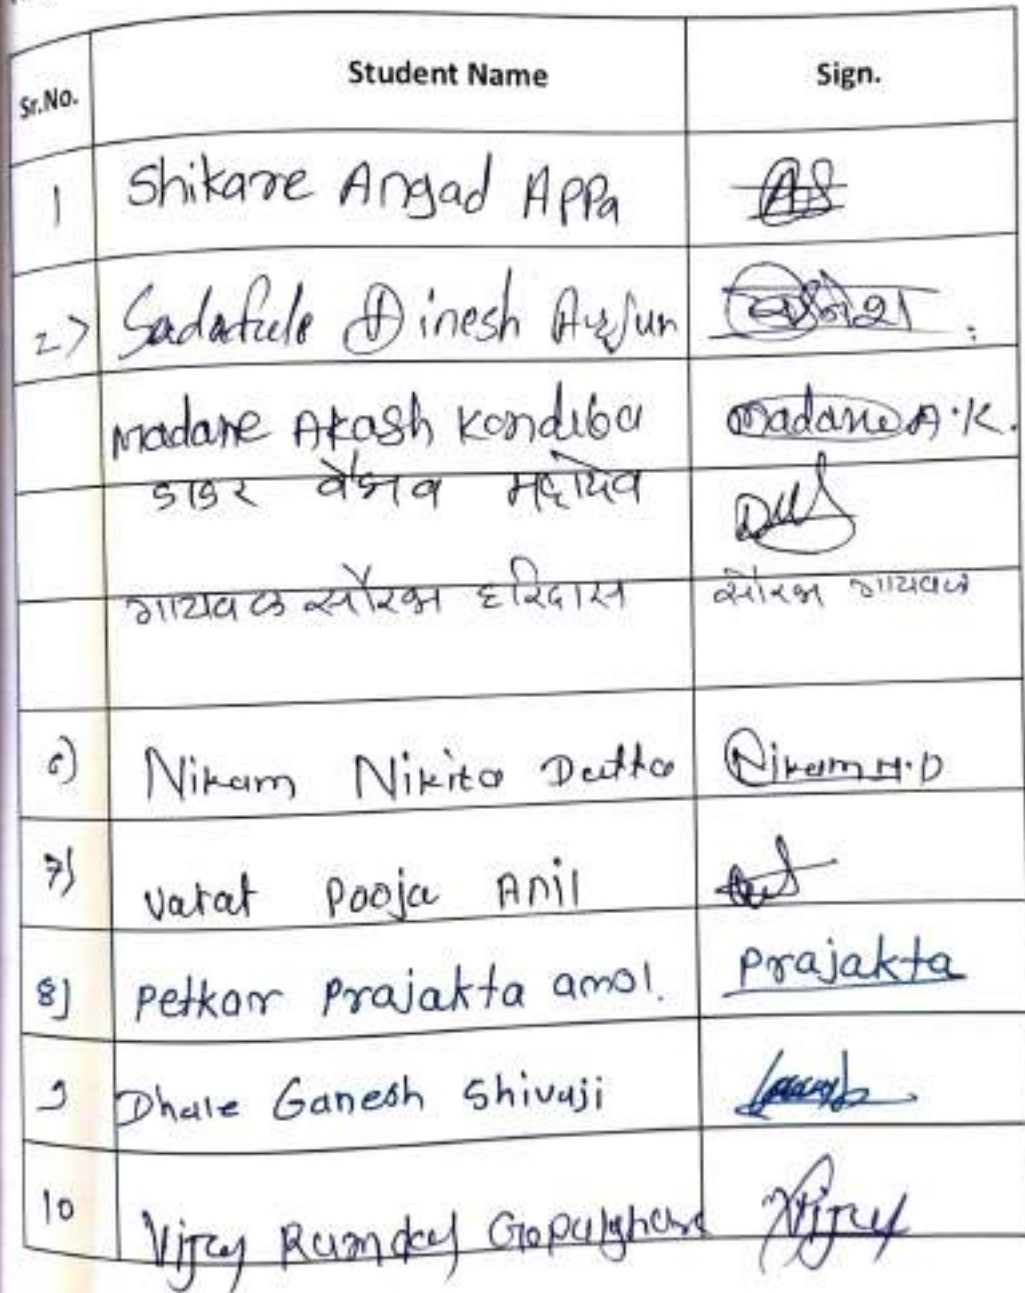 Sr.No. Student Name Sign.
1 Shikare Angad Appa AS
2) Sadafule Dinesh Arjun
Madane Akash Kondiba Madane A.K.
डाकर वैभव महादेव
गायवळ सौरभ हरिदास सौरभ गायवळ
6) Nikam Nikita Datta Nikam N.D
7) Varat Pooja Anil
8) Petkar Prajakta amol. Prajakta
9 Dhale Ganesh Shivaji
10 Vijay Ramdas Gopalghare Vijay